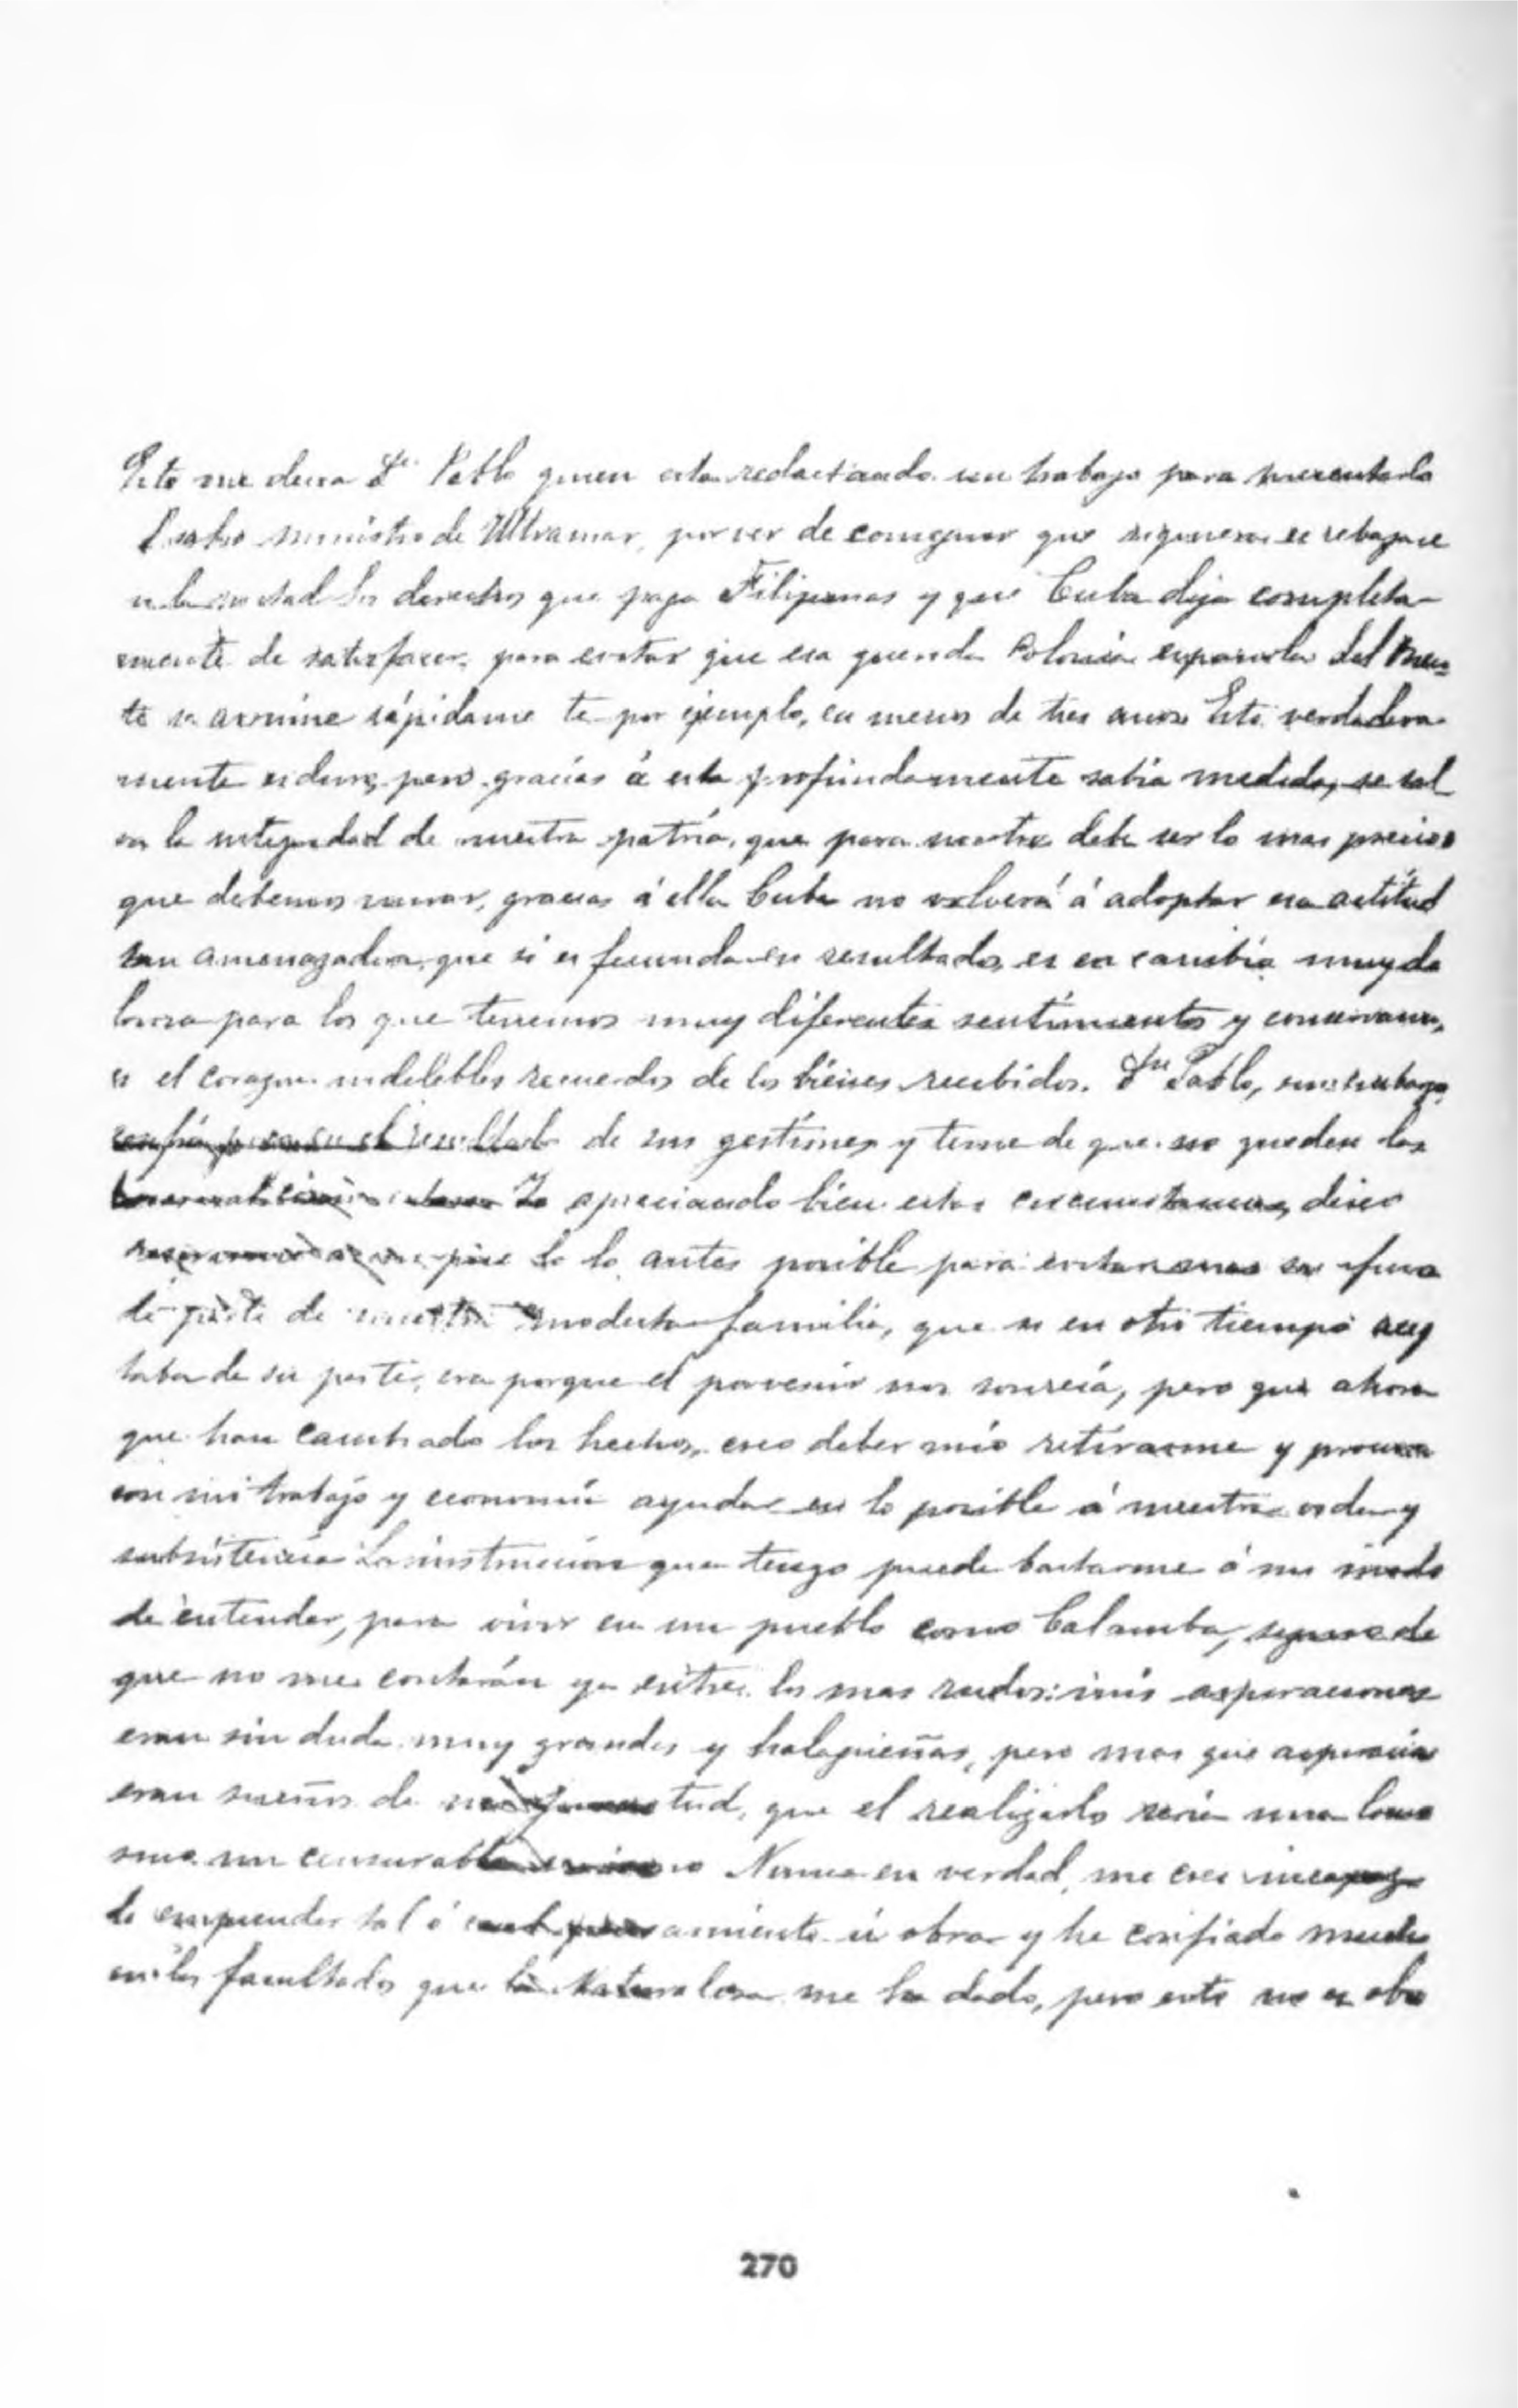 Esto me decia Dn. Pablo quien esta redactando un trabajo para presentarlo
ministro de Ultramar, por ver de conseguir que siquiera se rebajase
a la mitad los derechos que paga Filipinas y que Cuba deja completa-
mente de satisfacer, para evitar que esa querida Colonia española del Orien-
te se arruine rápidamente por ejemplo, en menos de tres años. Esto verdadera-
mente es duro, pero gracias á esta profundamente sabia medida, se sal
va la integridad de nuestra patria, que para nosotros debe ser lo mas precioso
que debemos mirar, gracias á ella Cuba no volverá á adoptar esa actitud
tan amenazadora, que si es fecunda en resultados, es en cambio muy do
lorosa para los que tenemos muy diferentes sentimientos y conservamos
en el corazon indelebles recuerdos de los bienes recibidos. Dn Pablo, sin embargo,
confía poco en el resultado de sus gestiones y teme de que no queden las
Yo apreciando bien estas circunstancias, deseo
lo antes posible para evitar
de parte de nuestra modesta familia, que si en otro tiempo acep
taba de su parte, era porque el porvenir nos sonreía, pero que ahora
que han cambiado los hechos, creo deber mío retirarme y procurar
con mi trabajo y economía ayudar en lo posible á nuestra orden y
subsistencia. La instruccion que tengo puede bastarme á mi modo
de entender, para vivir en un pueblo como Calamba, seguro de
que no me contarán ya entre los mas rudos: mis aspiraciones
eran sin duda muy grandes y halagüeñas, pero mas que aspiracio
eran sueños de mi juventud, que el realizarlos sería una locu
sino un censurable Nunca en verdad, me creí incapaz
de emprender tal ó cual pensamiento ú obra y he confiado mucho
en las facultades que la Naturaleza me ha dado, pero esto no es obs
270